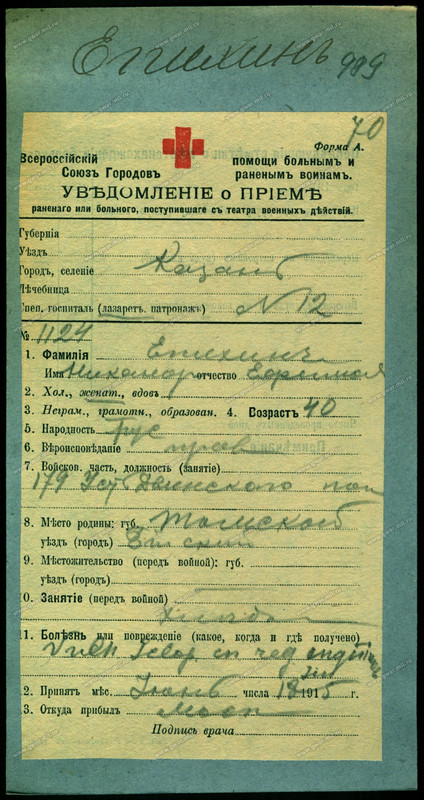 Епихинъ 989
70
Форма А.
Всероссійскій
Союзъ Городовъ
помощи больнымъ и
раненымъ воинамъ.
УВѢДОМЛЕНІЕ о ПРІЕМѢ
раненаго или больного, поступившаго съ театра военныхъ дѣйствій.
Губернія
Уѣздъ
Городъ, селеніе Казань
Лѣчебница
Спец. госпиталь (лазаретъ. патронажъ) N 12
№ 1124
1. Фамилія Епихинъ
Имя Никаноръ отчество
2. Хол., женат., вдовъ.
3. Неграм., грамотн., образован. 4. Возрастъ 40
5. Народность рус
6. Вѣроисповѣданіе прав
7. Войсков. часть, должность (занятіе)
179 Усть Двинского пол
8. Мѣсто родины: губ. Томской
уѣздъ (городъ) Бійскій
9. Мѣстожительство (передъ войной): губ.
уѣздъ (городъ)
10. Занятіе (передъ войной)
11. Болѣзнь или поврежденіе (какое, когда и гдѣ получено)
Vuln Sclop
12. Принятъ мѣс. Іюнь числа 18 1915 г.
13. Откуда прибылъ Моск
Подпись врача